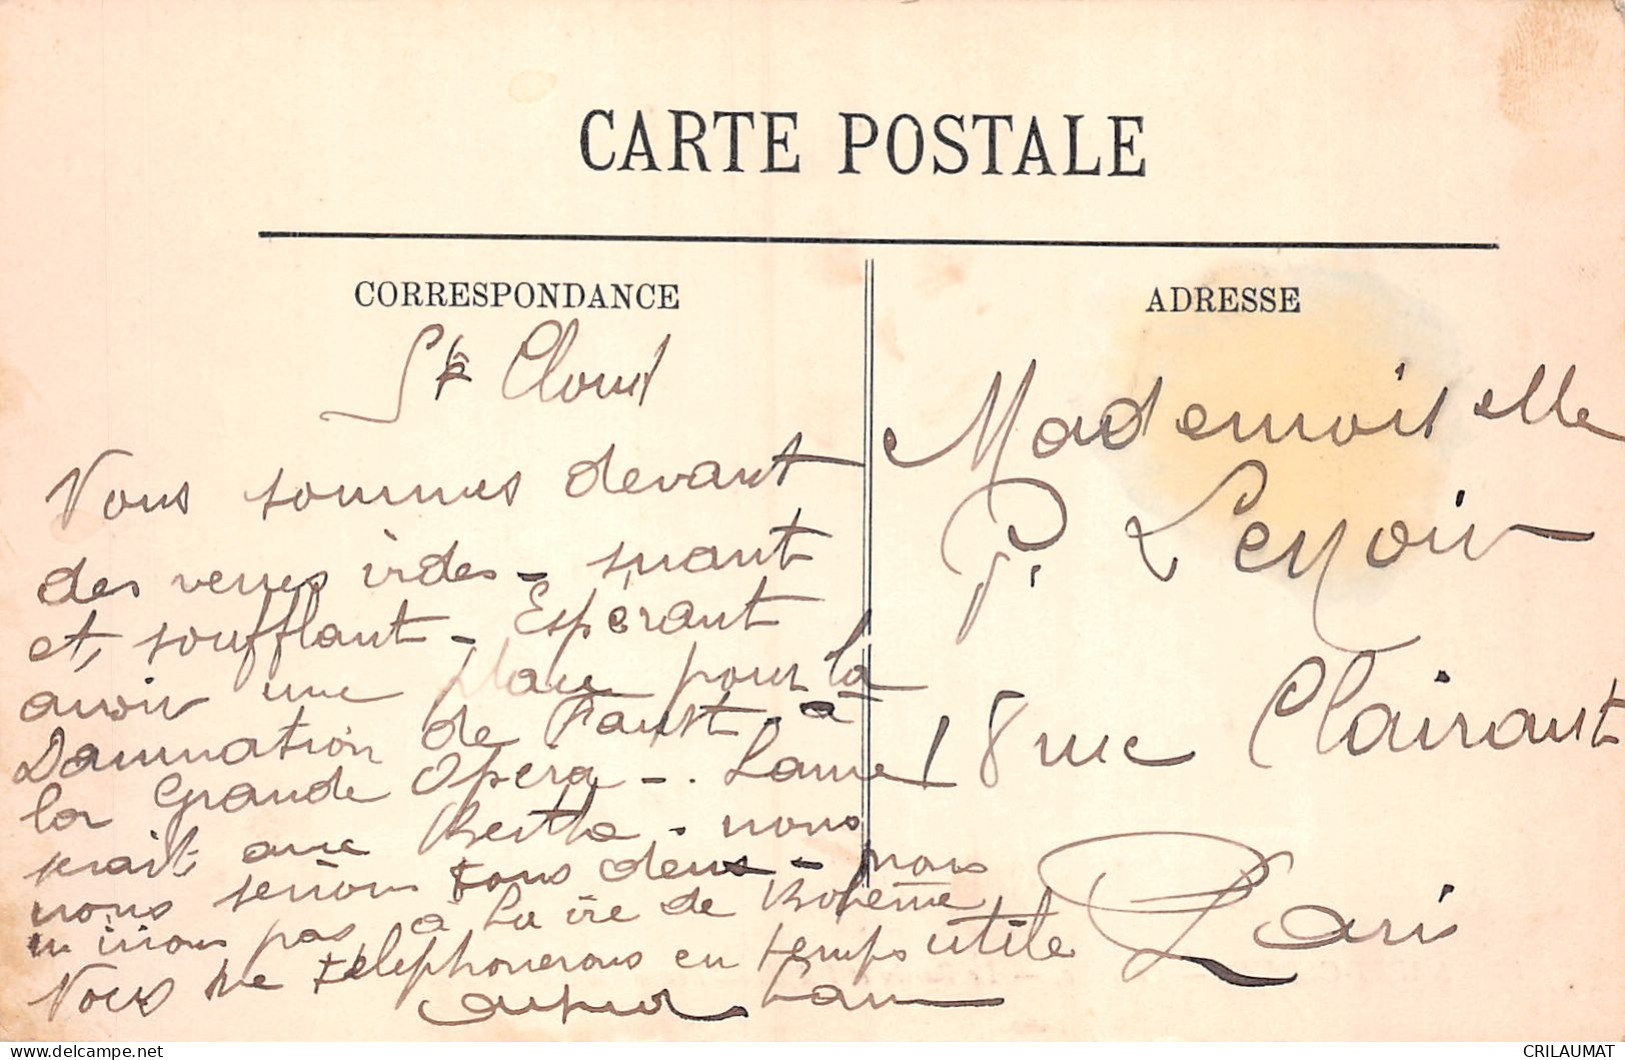 CARTE POSTALE
CORRESPONDANCE
St Cloud
Nous sommes devant
des verres vides - suant
et, soufflant - Espérant
avoir une place pour la
Damnation de Faust - à
la Grande Opéra - .
serait avec Bertha - nous
nous serions tous deux - nous
n'irions pas à La vie de Bohème
Nous te téléphonerons en temps utile
ADRESSE
Mademoiselle
P. Lenoir
18 rue Clairaut
Paris
CRILAUMAT